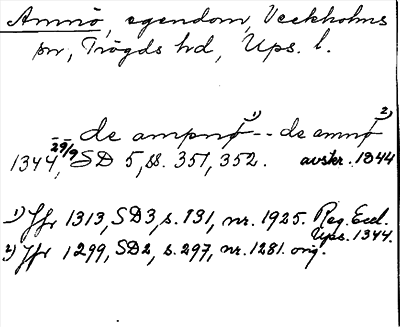 Ammö, egendom, Veckholms
sn, Trögds hd, Ups. l.
-- de ampnø 1) -- de amnø 2)
1344 29/9, SD 5, ss. 351, 352. avskr. 1344
1) Jfr 1313, SD3, s. 131, nr. 1925. Reg. Eccl. Ups. 1344.
2) Jfr 1299, SD2, s. 297, nr. 1281. orig.